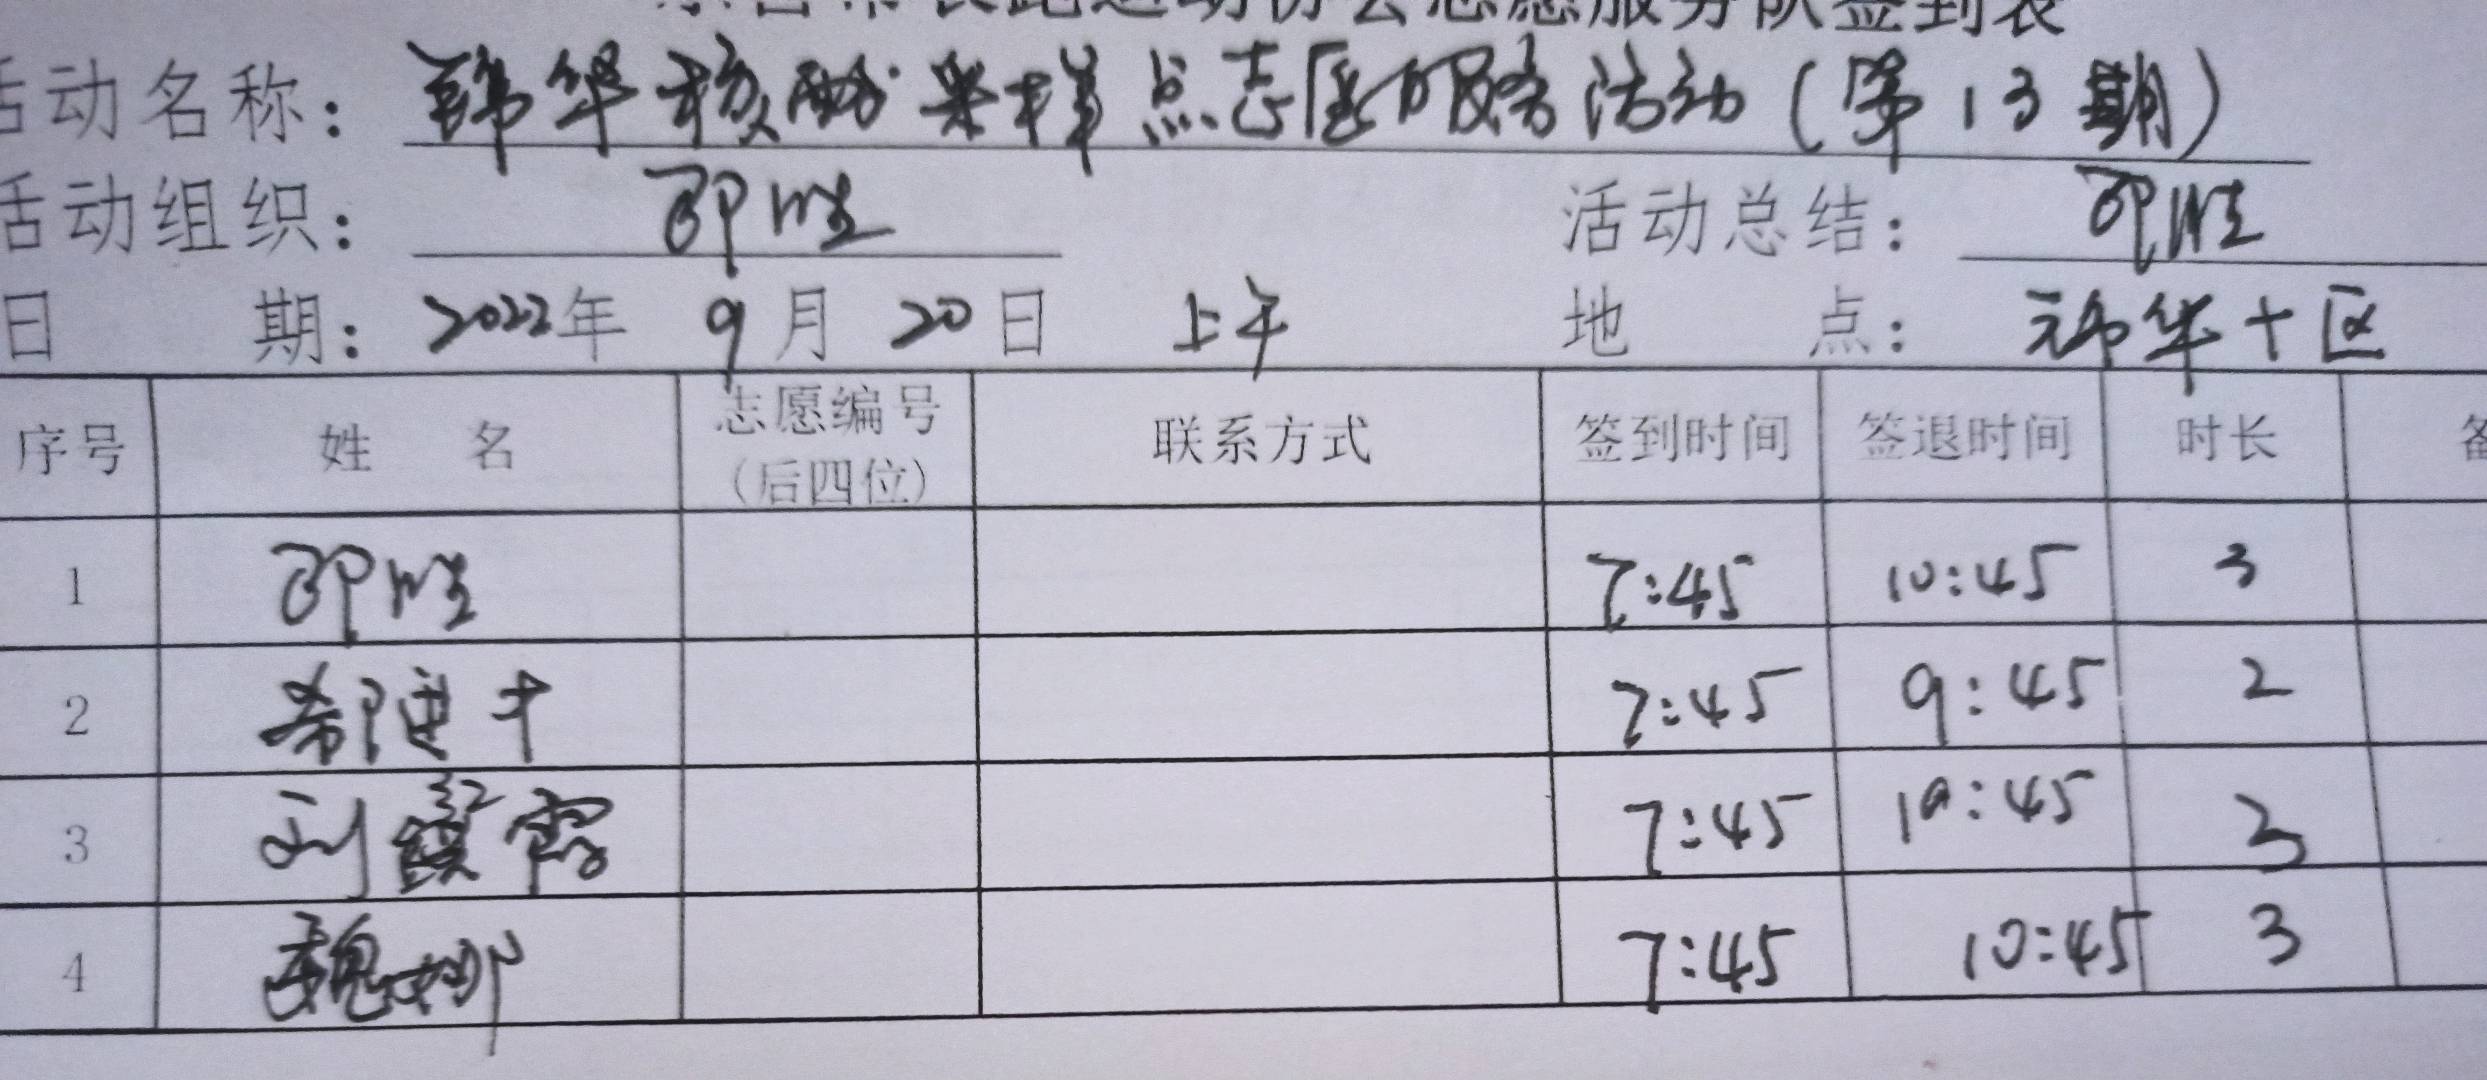 市长跑运动协会志愿服务队签到表
活动名称：锦华核酸采样点志愿服务活动（第13期）
活动组织：邵胜 活动总结：邵胜
日 期：2022年 9月 20日 上午 地 点：锦华十区
序号 姓 名 志愿编号（后四位） 联系方式 签到时间 签退时间 时长
1 邵胜 7:45 10:45 3
2 7:45 9:45 2
3 刘 霞 7:45 10:45 3
4 魏娜 7:45 10:45 3